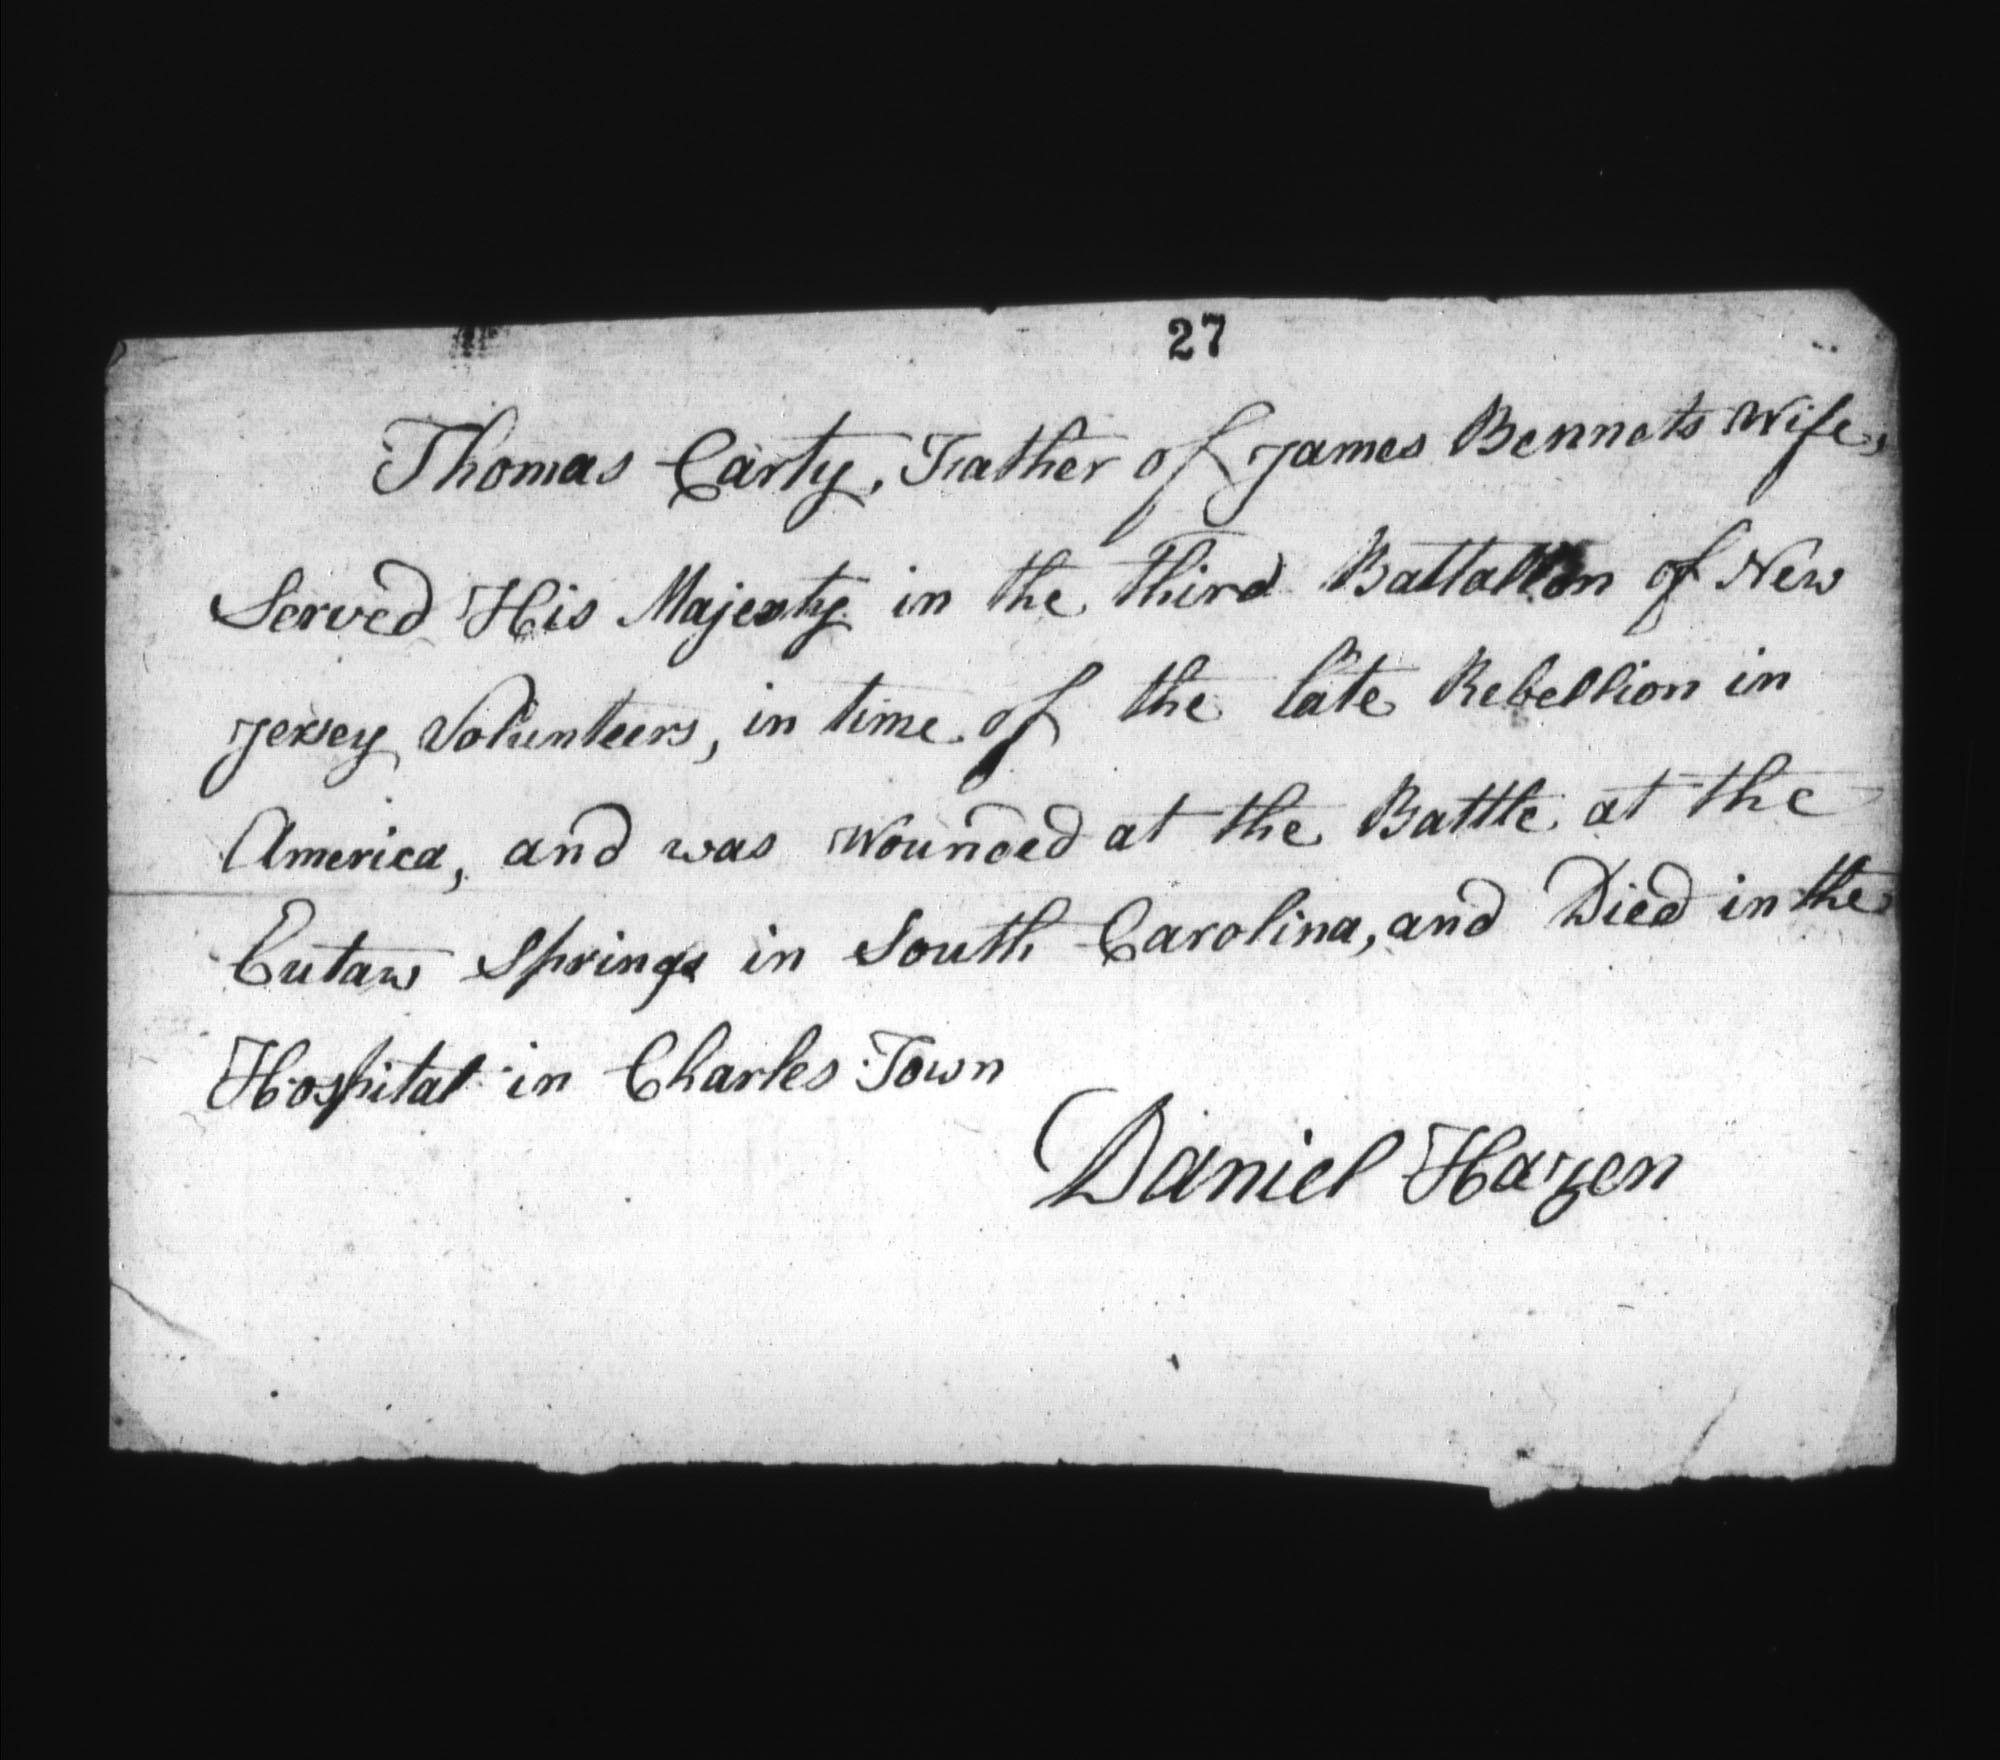 27
Thomas Carty, Father of James Bennets Wife,
Served His Majesty in the third Battallion of New
Jersey Volunteers, in time of the late Rebellion in
America, and was wounded at the Battle at the
Eutaw Springs in South Carolina, and Died in the
Hospital in Charles Town
Daniel Hazen